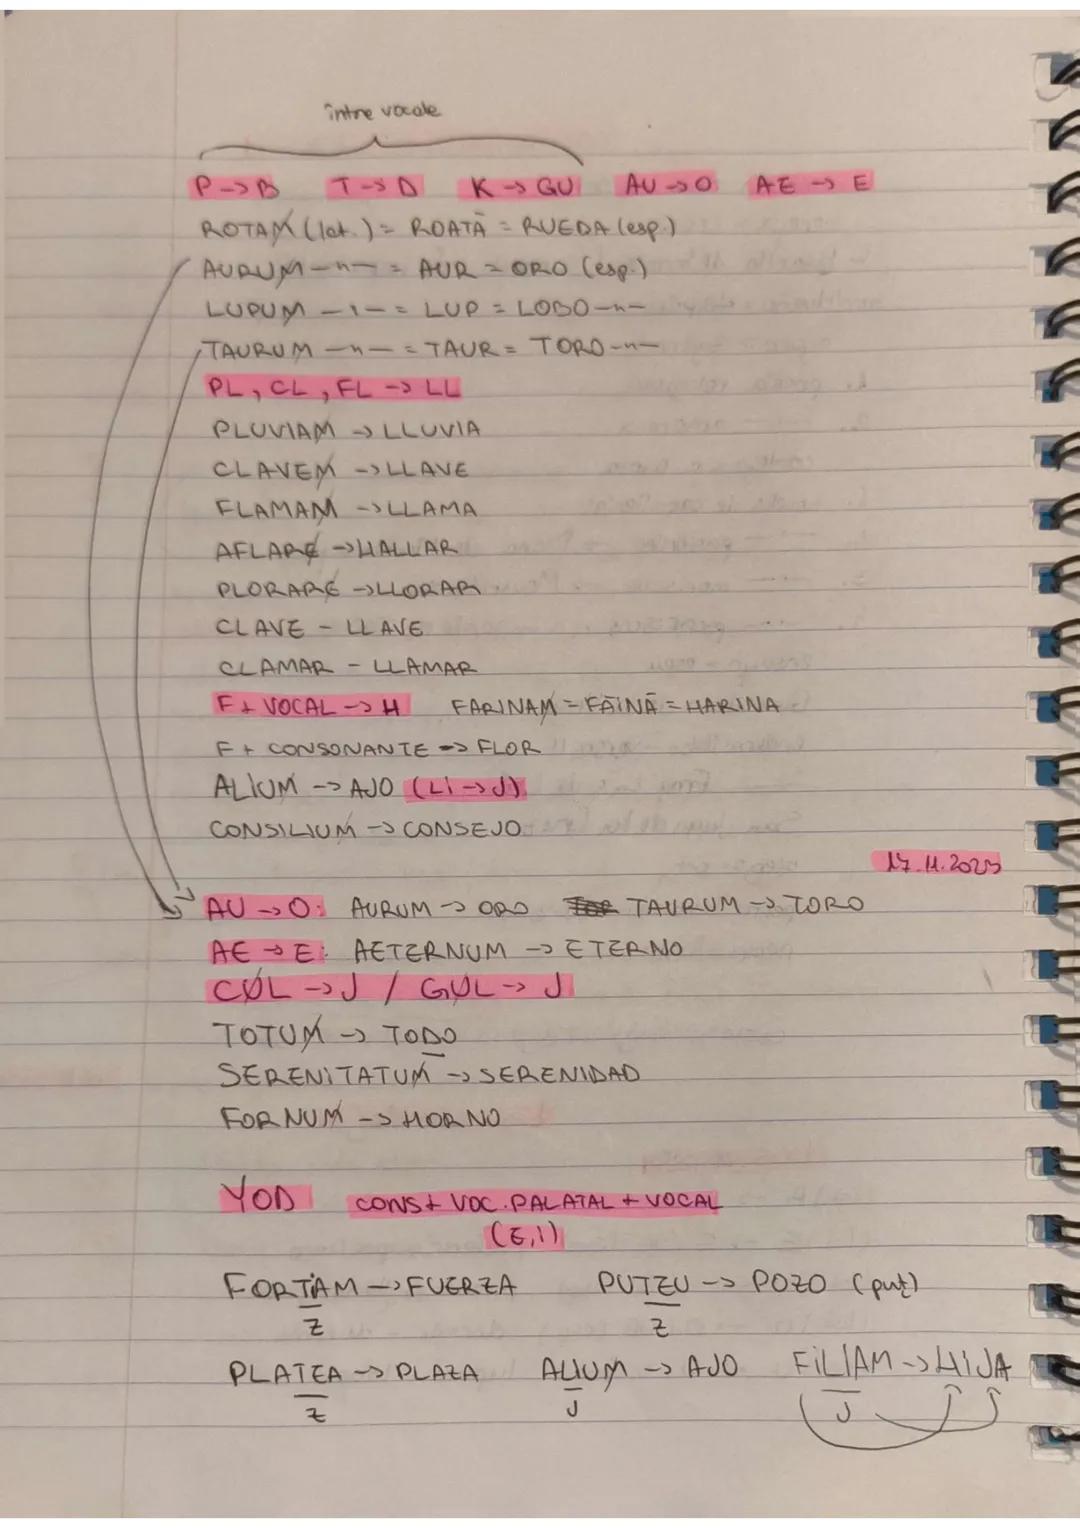 între vocale
P->B T->D K->GU AU->O AE->E
ROTAM (lat.) = ROATĂ = RUEDA (esp.)
AURUM —"— = AUR = ORO (esp.)
LUPUM —"— = LUP = LOBO —"—
TAURUM —"— = TAUR = TORO —"—
PL, CL, FL -> LL
PLUVIAM -> LLUVIA
CLAVEM -> LLAVE
FLAMAM -> LLAMA
AFLARE -> HALLAR
PLORARE -> LLORAR
CLAVE - LLAVE
CLAMAR - LLAMAR
F + VOCAL -> H FARINAM = FĂINĂ = HARINA
F + CONSONANTE -> FLOR
ALIUM -> AJO (LI -> J)
CONSILIUM -> CONSEJO
17.11.2025
AU -> O: AURUM -> ORO TAURUM -> TORO
AE -> E: AETERNUM -> ETERNO
CUL -> J / GUL -> J
TOTUM -> TODO
SERENITATUM -> SERENIDAD
FORNUM -> HORNO
YOD CONS + VOC. PALATAL + VOCAL
(E,I)
FORTIAM -> FUERZA PUTEU -> POZO (puț)
Z Z
PLATEA -> PLAZA ALIUM -> AJO FILIAM -> HIJA
Z J J